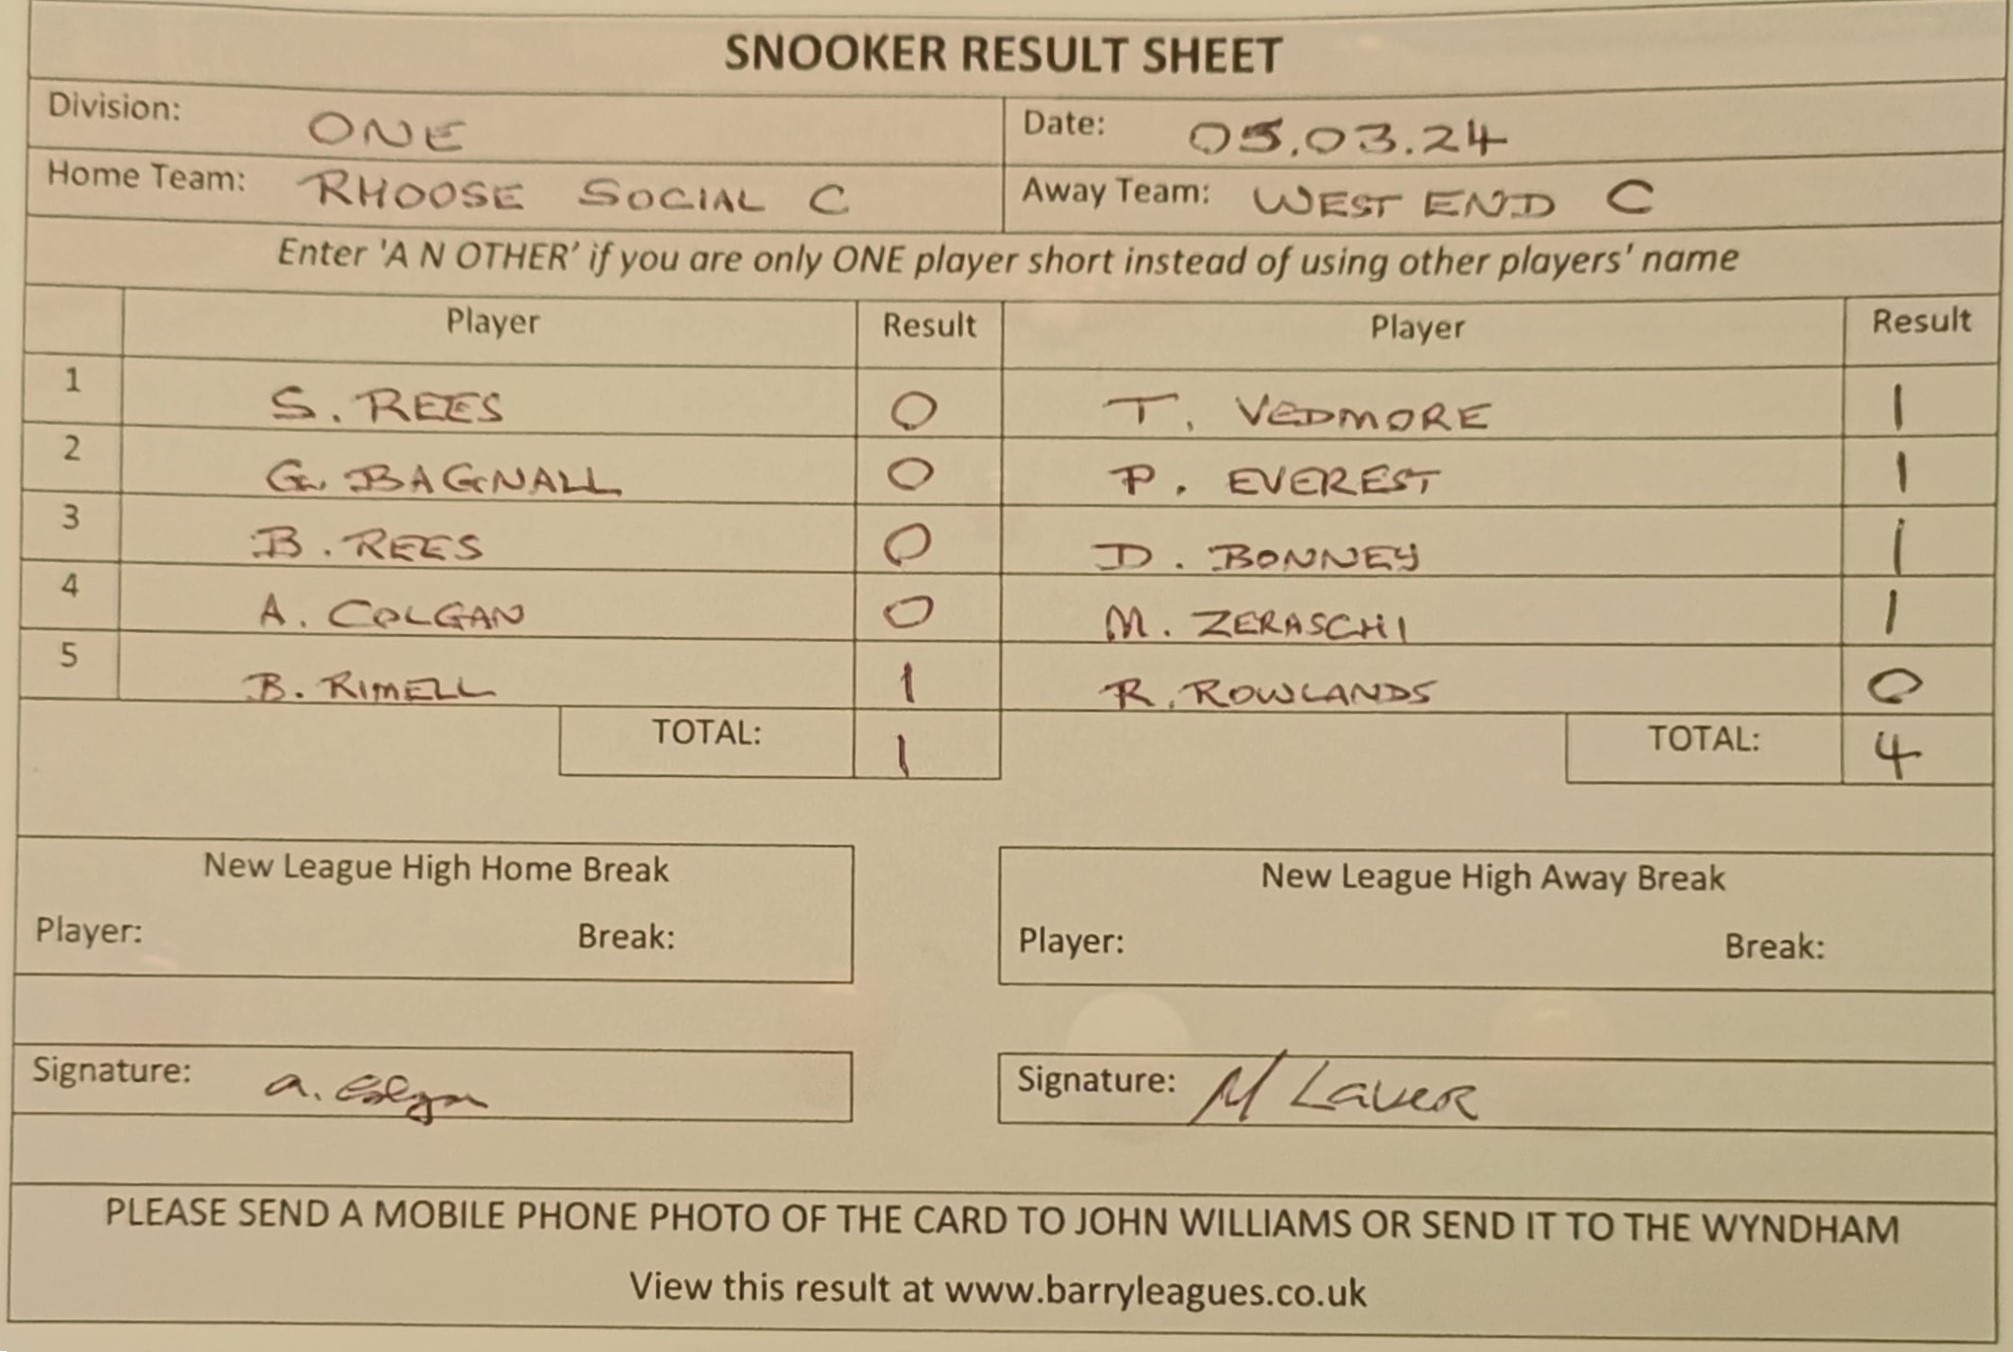 SNOOKER RESULT SHEET
Division: ONE Date: 05.03.24
Home Team: RHOOSE SOCIAL C Away Team: WEST END C
Enter 'A N OTHER' if you are only ONE player short instead of using other players' name
Player Result Player Result
1 S. REES 0 T. VEDMORE 1
2 G. BAGNALL 0 P. EVEREST 1
3 B. REES 0 D. BONNEY 1
4 A. COLGAN 0 M. ZERASCHI 1
5 B. RIMELL 1 R. ROWLANDS 0
TOTAL: 1 TOTAL: 4
New League High Home Break New League High Away Break
Player: Break: Player: Break:
Signature: a. Colgan Signature: M LaveR
PLEASE SEND A MOBILE PHONE PHOTO OF THE CARD TO JOHN WILLIAMS OR SEND IT TO THE WYNDHAM
View this result at www.barryleagues.co.uk